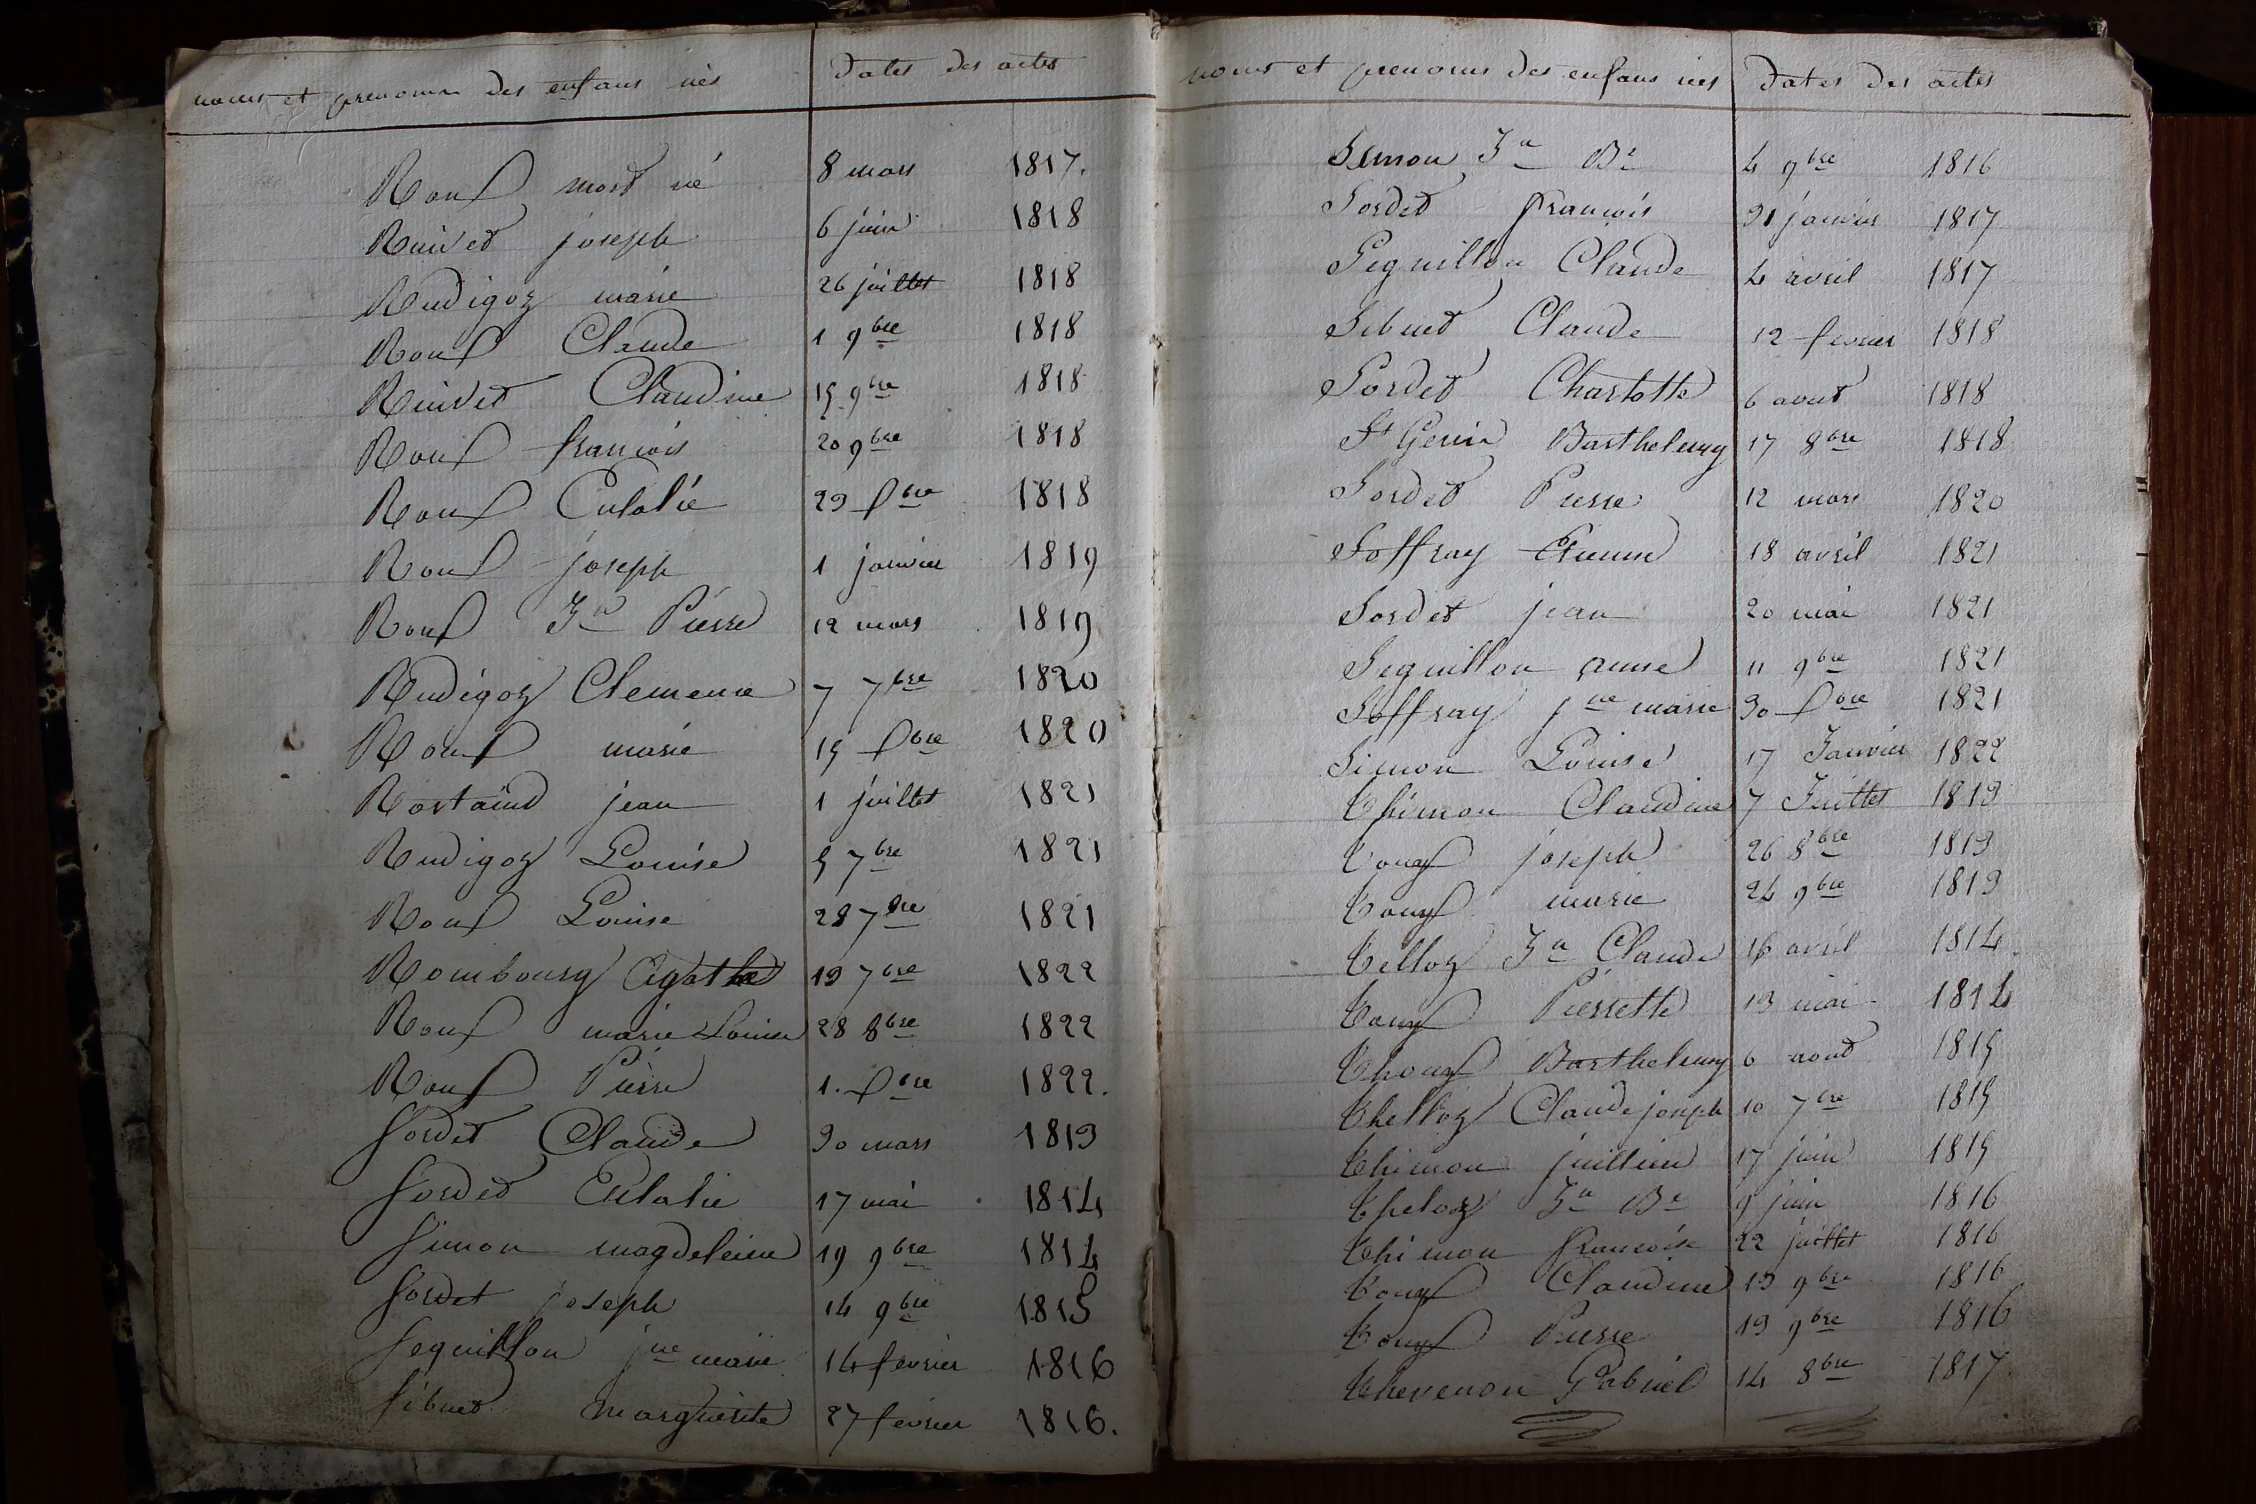 noms et prenoms des enfans nés dates des actes
Roux mort né 8 mars 1817.
Ruivet joseph 6 juin 1818
Rudigoz marie 26 juillet 1818
Roux Claude 1 9bre 1818
Ruivet Claudine 15 9bre 1818
Roux francois 20 9bre 1818
Roux Eulalie 29 Xbre 1818
Roux joseph 1 janvier 1819
Roux Jn Pierre 12 mars 1819
Rudigoz Clemence 7 7bre 1820
Roux marie 15 Xbre 1820
Rostaind jean 1 juillet 1821
Rudigoz Louise 5 7bre 1821
Roux Louise 28 7bre 1821
Rombourg Agathe 19 7bre 1822
Roux marie Louise 28 8bre 1822
Roux Pierre 1. Xbre 1822.
Sordet Claude 30 mars 1813
Sordet Eulalie 17 mai 1814
Simon magdeleine 19 9bre 1814
Sordet joseph 14 9bre 1815
Seguillon jne marie 14 fevrier 1816
Sibuet marguerite 27 fevrier 1816.
noms et prenoms des enfans nés dates des actes
Simon Jn Bte 4 9bre 1816
Sordet francois 31 janvier 1817
Seguillon Claude 4 avril 1817
Sibuet Claude 12 fevrier 1818
Sordet Charlotte 6 aout 1818
St Genis Barthelemy 17 8bre 1818
Sordet Pierre 12 mars 1820
Soffray Etienne 18 avril 1821
Sordet jean 20 mai 1821
Seguillon anne 11 9bre 1821
Soffray jne marie 30 Xbre 1821
Simon Louise 17 Janvier 1822
Thimon Claudine 7 Juillet 1813
Touy joseph 26 8bre 1813
Touy marie 24 9bre 1813
Telloz Jn Claude 16 avril 1814.
Touy Pierrette 13 mai 1814
Thouy Barthelemy 6 aout 1815
Thelloz Claude joseph 10 7bre 1815
Thimon juillien 17 juin 1815
Theloz Jn Bte 9 juin 1816
Thimon francoise 22 juillet 1816
Touy Claudine 13 9bre 1816
Touy Pierre 19 9bre 1816
Thevenon Gabriel 14 8bre 1817.